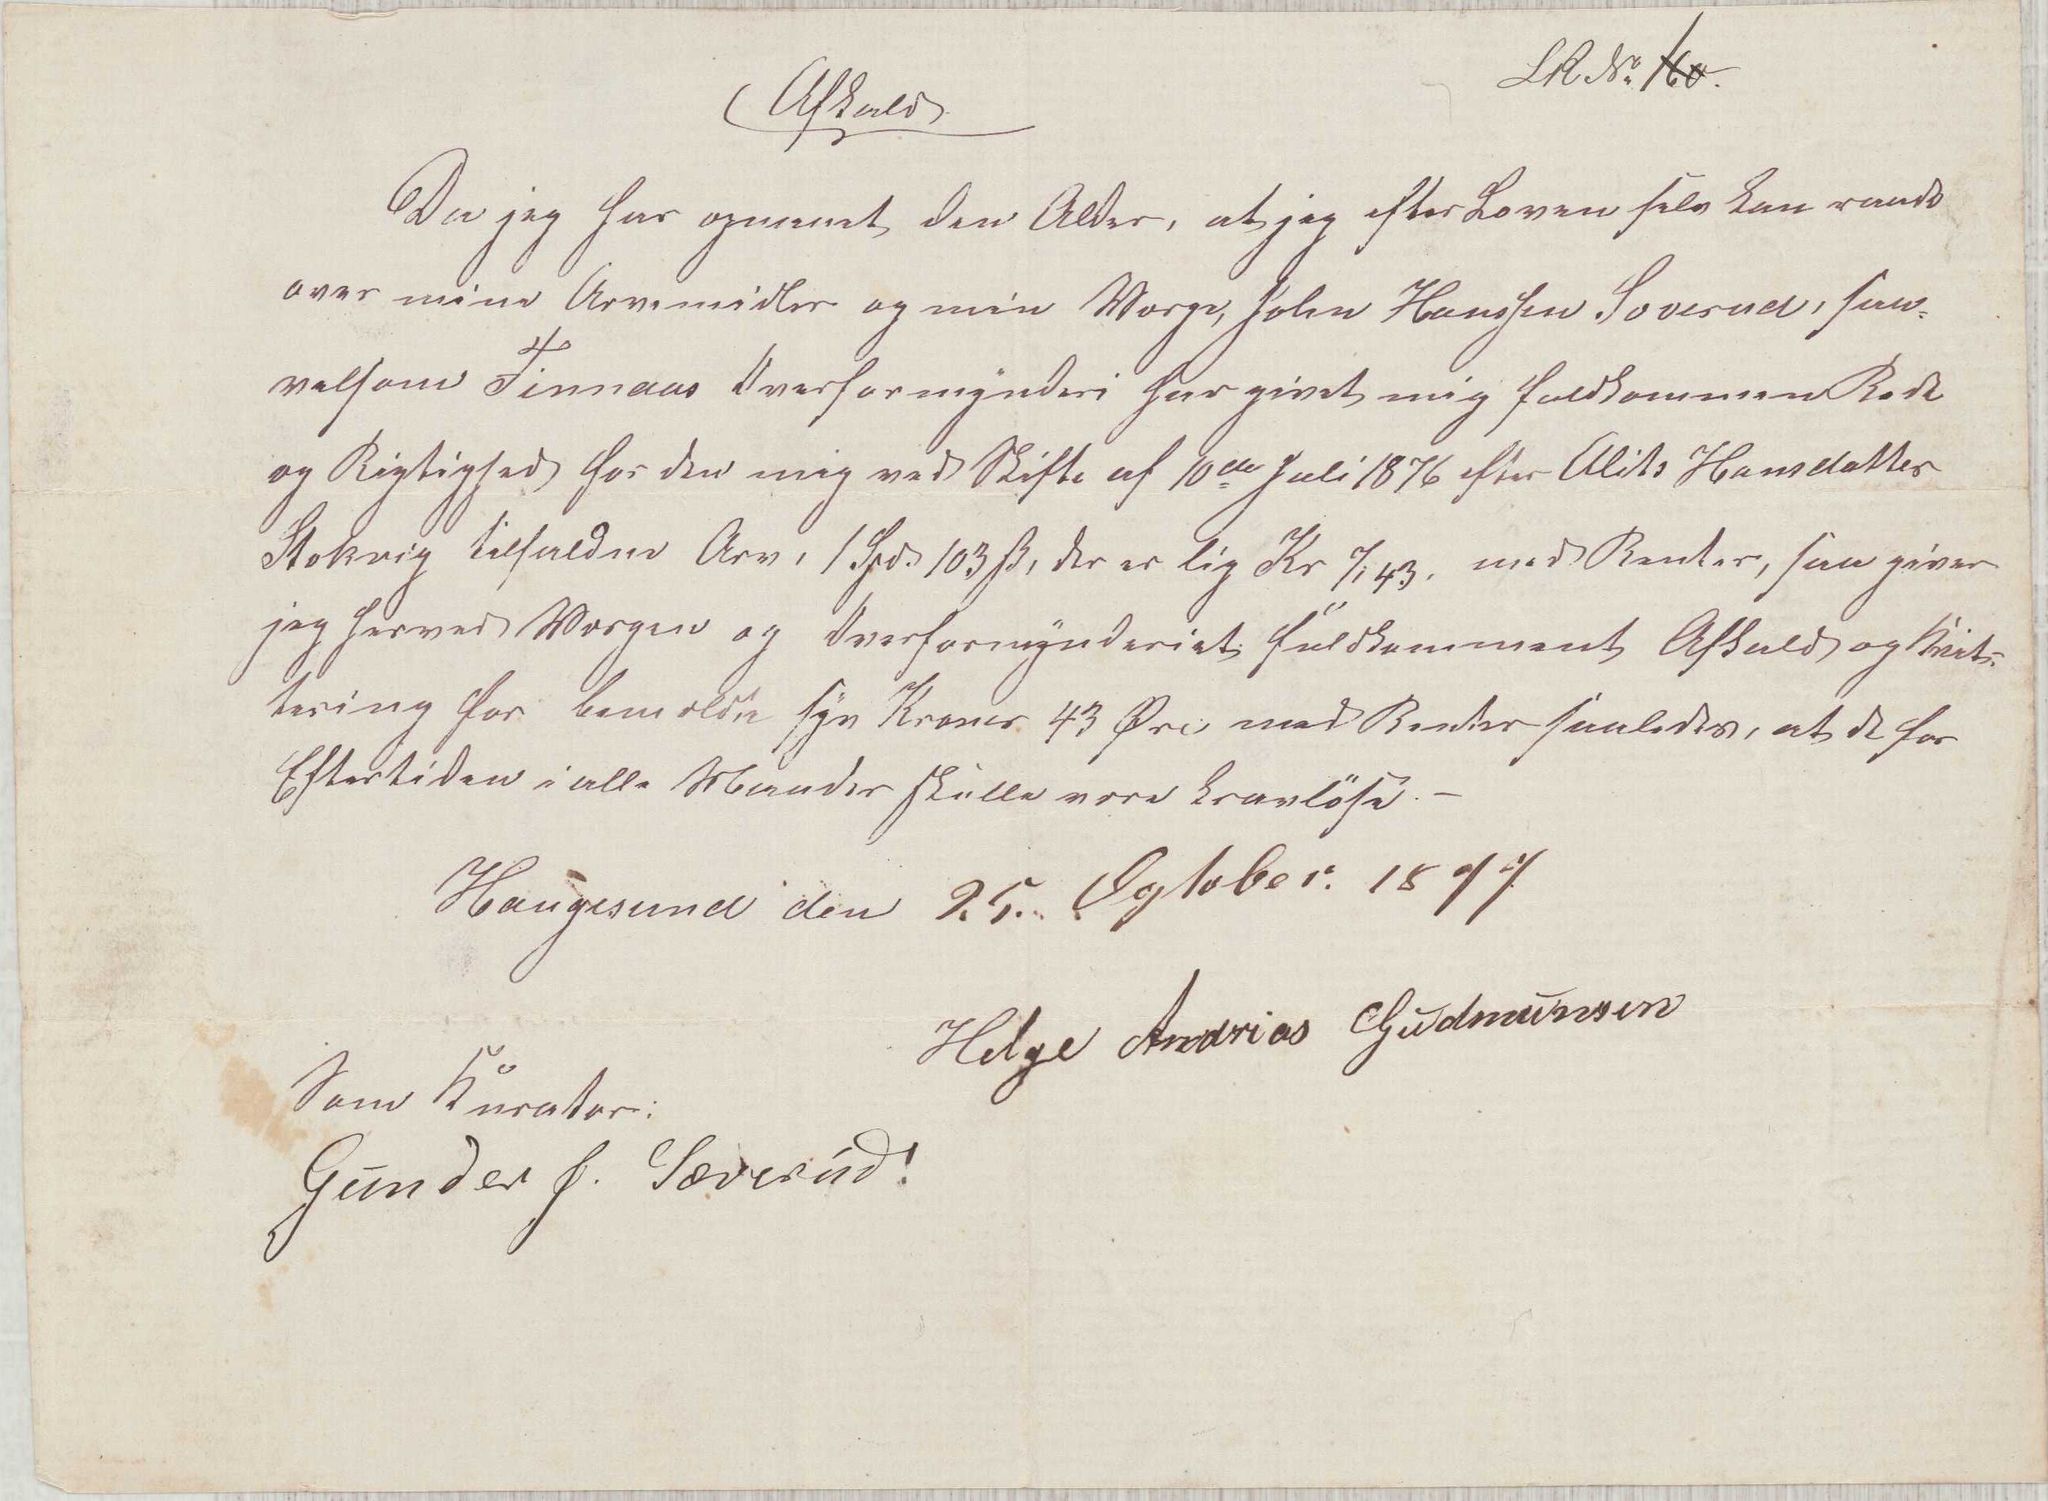 LR No. 160.
Afkald
Da jeg har opnaaet den Alder, at jeg efter Loven selv kan raade
over mine Arvemidler og min Værge, John Hanssen Soverud, saa-
velsom Finnaas Overformynderi har givet mig fuldkommen Rede
og Rigtighed for den mig ved Skifte af 10de Juli 1876 efter Alits Hansdatter
Stokvig tilfaldne Arv, 1 Spd. 103 ß, der er lig Kr 7,43. med Renter, saa giver
jeg herved Værgen og Overformynderiet fuldkomment Afkald og Kvit-
tering for bemeldte syv Kroner 43 Øre med Renter saaledes, at de for
Eftertiden i alle Maader skulle være kravløse. -
Haugesund den 25. Ogtober. 1877
Helge Andrias Gudmunsen
Som Kurator:
Gunder J. Sæverud!